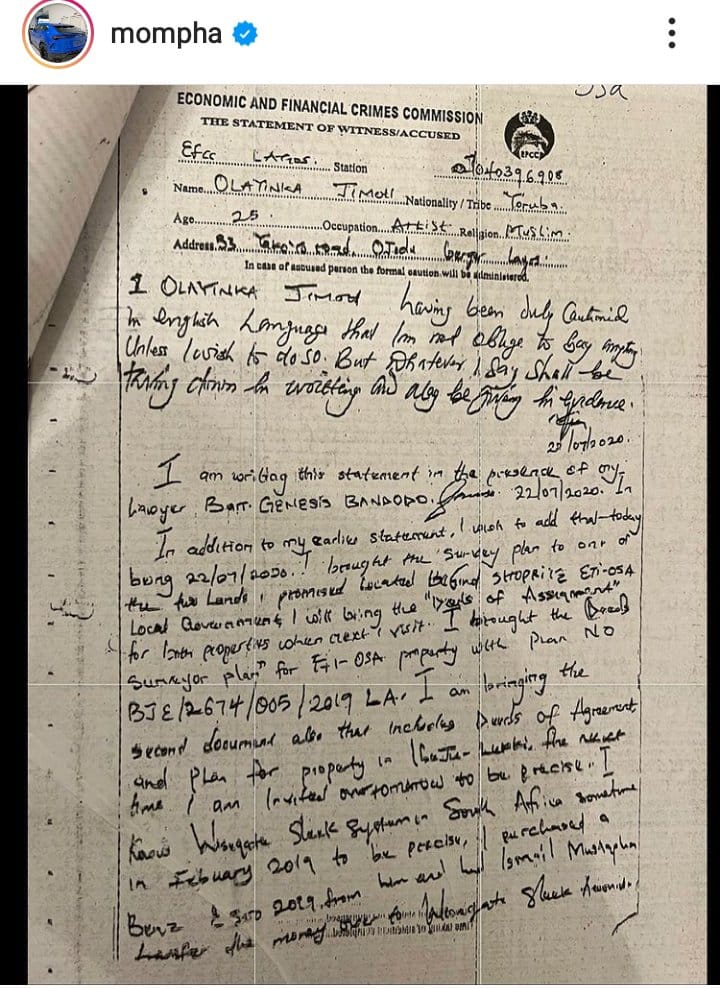 mompha
USA
ECONOMIC AND FINANCIAL CRIMES COMMISSION
THE STATEMENT OF WITNESS/ACCUSED
EFCC
Efcc LAGOS. Station
07040396908
Name OLAYINKA JIMOH Nationality / Tribe Yoruba.
Age 25. Occupation Artist Religion Muslim.
Address 33, road, Ojodu berger Lagos.
In case of accused person the formal caution will be administered.
I OLAYINKA Jimoh having been duly Cautioned
In english Language that I'm not oblige to say anything
Unless I wish to do so. But Whatever I say shall be
down in and be in evidence.
22/07/2020.
I am writing this statement in the presence of my
Lawyer Barr. GENESIS 22/07/2020. In
In addition to my earlier statement, I wish to add that today
being 22/07/2020. I brought the survey plan to one of
the two Lands I promised located behind SHOPRITE ETI-OSA
Local Government, I will bring the "Deeds of Assignment"
for both properties when next I visit. I brought the Deeds
Surveyor plan" for ETI-OSA property with Plan NO
BJE/2674/005/2019 LA. I am bringing the
second document also that includes Deeds of Agreement
and Plan for property in Lekki, the next
time I am Invited to be precise. I
Know in South Africa sometime
in Febuary 2019 to be precise, I purchased a
Benz 2019 from him and had Ismail Mustapha
the money